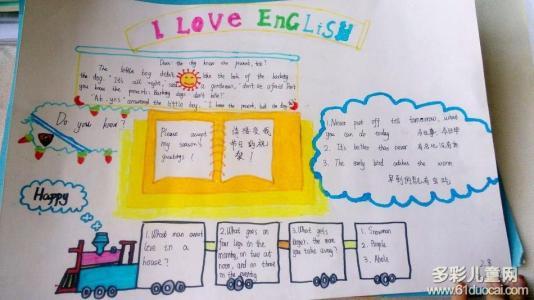 I LOVE ENGLISH
Does the dog know the proverb, too?
The little boy didn't like the look of the barking
the dog. "It's all right," said a gentleman, "don't be afraid. Don't
you know the proverb: Barking dogs don't bite?"
"Ah, yes" answered the little boy. "I know the proverb, but the dog
Do you know?
Please accept
my season's
greetings!
请接受我
节日的祝
贺!
1. Never put off tell tomorrow, what
you can do today 今日事,今日毕
2. It's better than never
3. The early bird catches the worm
早到的鸟有虫吃
Happy
1. What man cannt
live in a
house?
2. What goes on
four legs in the
morning, on two at
noon, and on three
in the evening
3. What gets
larger, the more
you take away?
1. Snowman
2. People
3. Ahole
多彩儿童网
www.61duocai.com